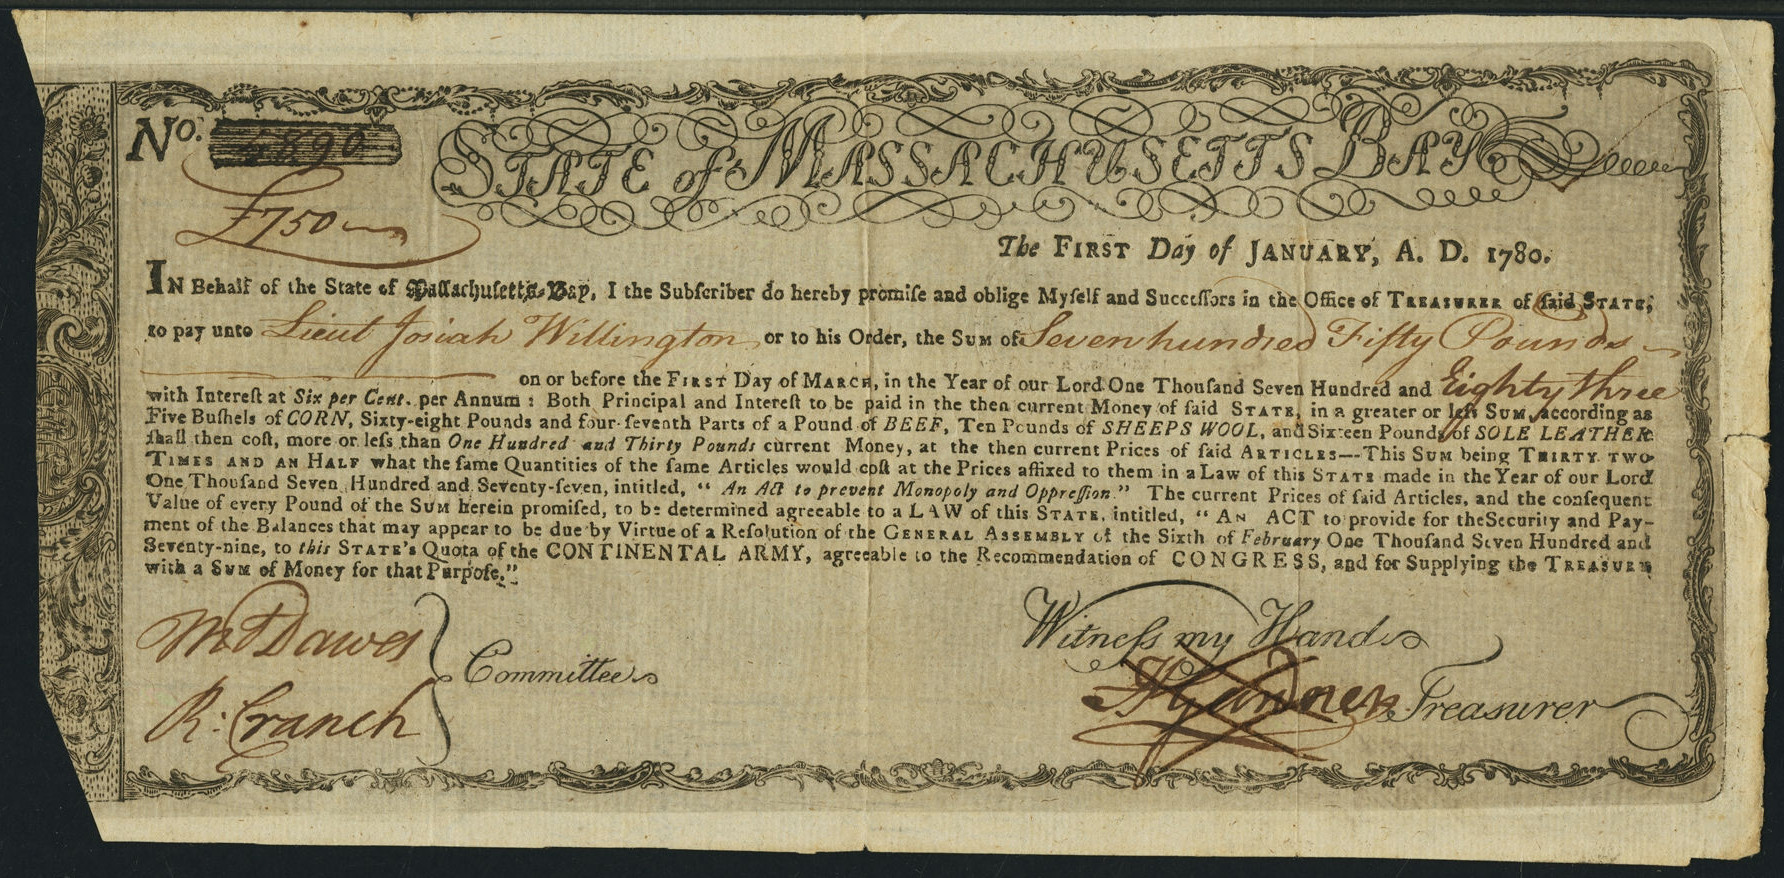 No. 4890
STATE of MASSACHUSETTS BAY
£750
The FIRST Day of JANUARY, A. D. 1780.
IN Behalf of the State of Massachusetts-Bay, I the Subscriber do hereby promise and oblige Myself and Successors in the Office of TREASURER of said STATE,
to pay unto Lieut Josiah Willington or to his Order, the SUM of Seven hundred Fifty Pounds
on or before the FIRST Day of MARCH, in the Year of our Lord One Thousand Seven Hundred and Eighty three
with Interest at Six per Cent. per Annum: Both Principal and Interest to be paid in the then current Money of said STATE, in a greater or less SUM, according as
Five Bushels of CORN, Sixty-eight Pounds and four-seventh Parts of a Pound of BEEF, Ten Pounds of SHEEPS WOOL, and Sixteen Pounds of SOLE LEATHER
shall then cost, more or less than One Hundred and Thirty Pounds current Money, at the then current Prices of said ARTICLES---This SUM being THIRTY TWO
TIMES AND AN HALF what the same Quantities of the same Articles would cost at the Prices affixed to them in a Law of this STATE made in the Year of our Lord
One Thousand Seven Hundred and Seventy-seven, intitled, "An Act to prevent Monopoly and Oppression." The current Prices of said Articles, and the consequent
Value of every Pound of the SUM herein promised, to be determined agreeable to a LAW of this STATE, intitled, "AN ACT to provide for the Security and Pay-
ment of the Balances that may appear to be due by Virtue of a Resolution of the GENERAL ASSEMBLY of the Sixth of February One Thousand Seven Hundred and
Seventy-nine, to this STATE's Quota of the CONTINENTAL ARMY, agreeable to the Recommendation of CONGRESS, and for Supplying the TREASURY
with a SUM of Money for that Purpose."
Witness my Hand
Dawes
R: Cranch
Committee
HGardner Treasurer